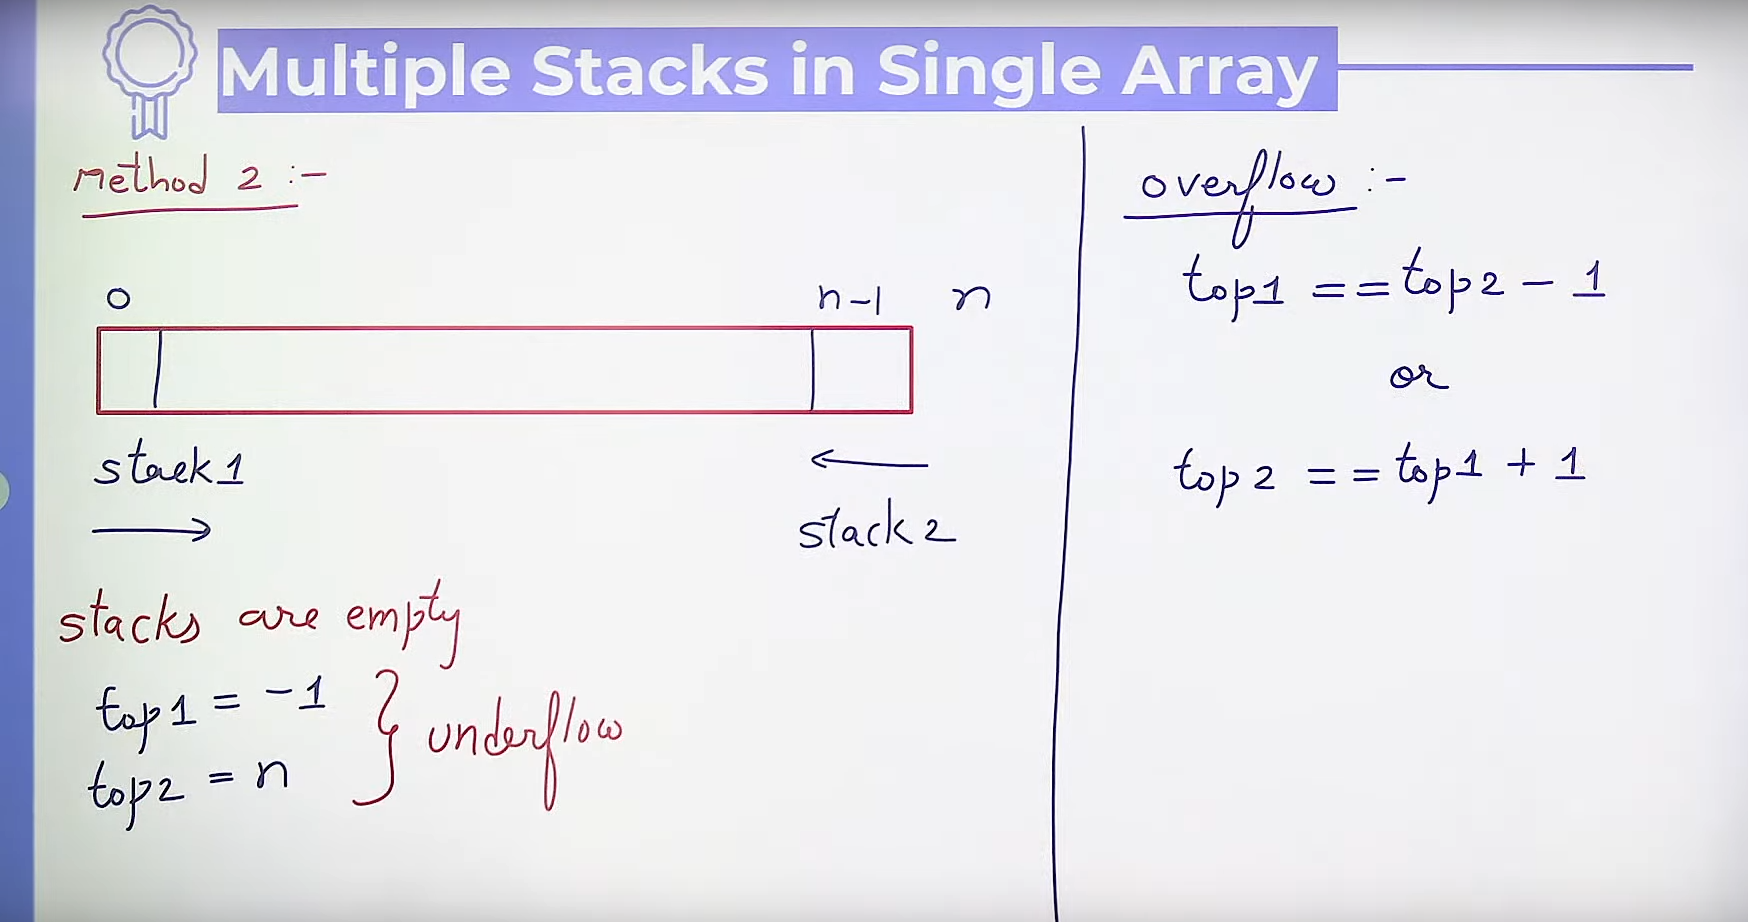 Multiple Stacks in Single Array
Method 2 :-
0 n-1 n
stack1
stack2
stacks are empty
top1 = -1
top2 = n
underflow
overflow :-
top1 == top2 - 1
or
top2 == top1 + 1